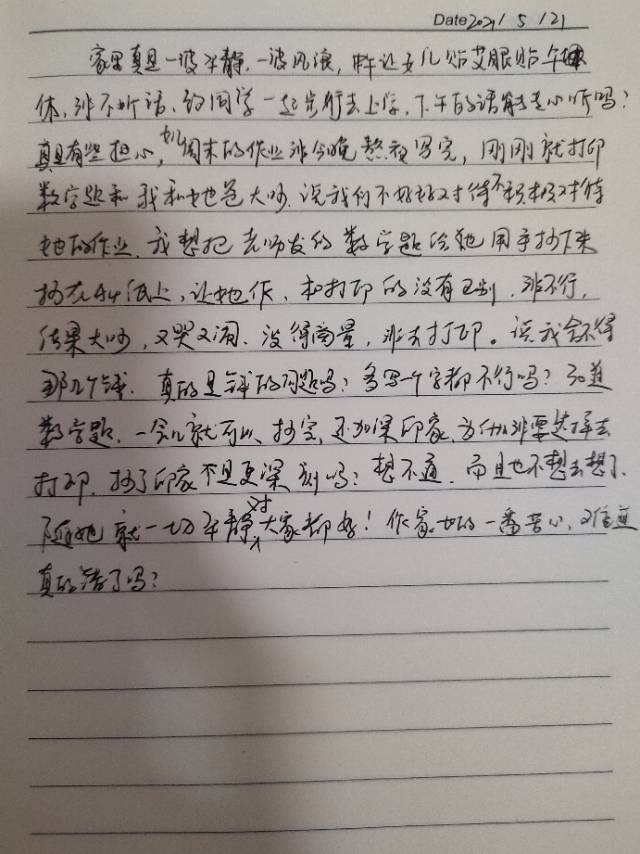 Date 2021 / 5 / 21
家里真是一波平静,一波风浪,中午让女儿贴艾眼贴午休
休,非不听话,约同学一起步行去上学,下午的课能专心听吗?
真是有些担心,她周末的作业非今晚熬夜写完,刚刚就打印
数学题和我和她爸大吵,说我们不好好对待不积极对待
她的作业,我想把老师发的数学题给她用手抄下来
抄在A4纸上,让她作,和打印的没有区别,非不行,
结果大吵,又哭又闹,没得商量,非去打印。说我舍不得
那几个钱,真的是钱的问题吗?多写一个字都不行吗?知道
数学题,一会儿就可以抄完,还加深印象,为什么非要选择去
打印,抄了印象不是更深刻吗?想不通,而且也不想去想了,
随她就一切平静对大家都好!作家长的一番苦心,难道
真的错了吗?